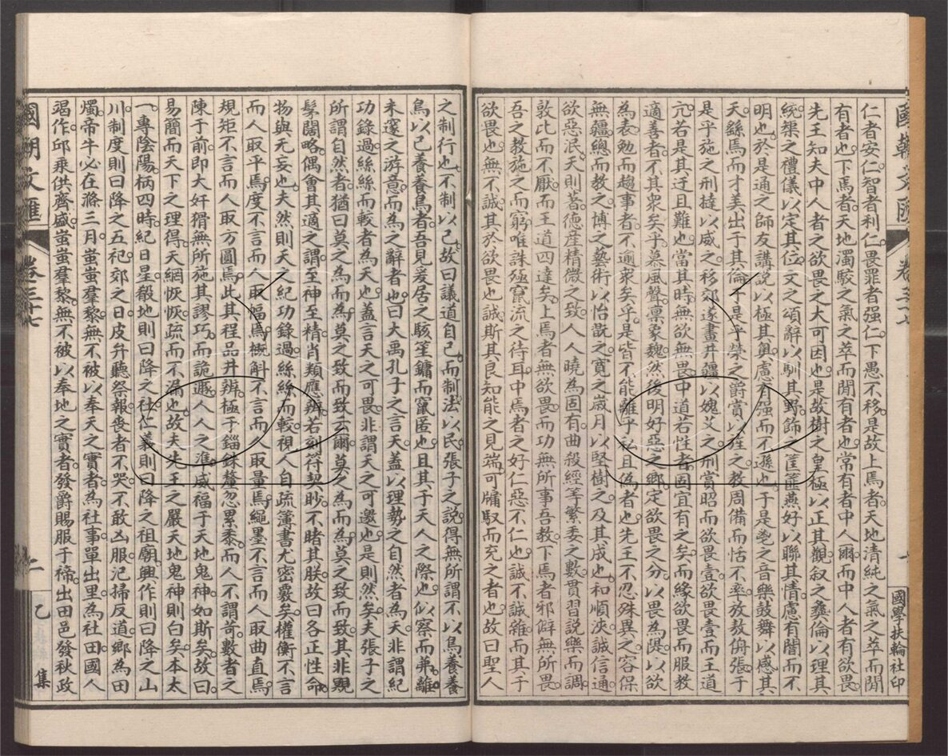 國朝文匯
卷三十七
國學扶輪社印
仁者安仁智者利仁畏罪者强仁下愚不移是故上焉者天地清純之氣之萃而閒
有者也下焉者天地濁駁之氣之萃而閒有者也常有者中人爾而中人者有欲畏
先王知夫中人者之欲畏之大可因也是故樹之皇極以正其觀叙之彝倫以理其
統槷之禮儀以定其位文之頌辭以馴其野飾之筐篚燕好以聯其情慮有闇而不
明也於是通之師友講說以極其奥慮有强而不遜也于是鬯之音樂鼓舞以感其
天繇焉而才美出于其倫乎于是乎榮之爵賞以
之教周備而怙不率放敖侜張于
是乎施之刑撻以威之移郊遂畫井疆以媿艾之刑賞昭而欲畏壹欲畏壹而王道
亢若是其迂且難也當其時無欲無畏中道若性者固宜有之矣而緣欲畏而服教
適善者不其衆矣乎慕風聲
象魏然後明好惡之鄉定欲畏之分以畏為
以欲
為表勉而趨事者不逾衆矣乎是皆不能離乎私且僞者也先王不忍殊異之容保
無疆總而教之博之藝術以怡
之寬之歲月以堅樹之及其成也和順浹誠信通
欲惡泯天則著德產精微之致人人曉為固有曲殺經等繁委之數貫習說樂而調
敦比而不厭而王道四達矣上焉者無欲畏而功無所事吾教下焉者邪僻無所畏
吾之教施之而窮唯誅殛竄流之待耳中焉者之好仁惡不仁也誠不誠雜而其于
欲畏也無不誠其於欲畏也誠斯其良知能之見端可牖馭而充之者也故曰聖人
之制行也不制以己故曰議道自己而制法以民張子之說得無所謂不以鳥養養
鳥以己養養鳥者吾見爰居之駭笙鏞而竄匿也且其于天人之際也似察而弗離
未邃之游意而為之辭者也曰大禹孔子之言天蓋以理勢之自然者為天非謂紀
功錄過絲絲而較者為天也蓋言天之可畏非謂天之可邀也是則然矣夫張子之
所謂自然者猶曰莫之為而為莫之致而致云爾莫之為而為莫之致而致其非
髣闊略偶會其適之謂至神至精肖類應辨若刻符契眇不睹其朕故曰各正性命
物與无妄也夫然則天之紀功錄過絲絲而較視人自疏簿書尤密嚴矣權衡不言
而人取平焉度不言而人取
焉概斛不言而人取量焉繩墨不言而人取曲直焉
規矩不言而人取方圓焉此其程品并辨極于錙銖釐忽累黍而人不謂苛數者之
陳于前即大奸猾無所施其謬巧而詭遯人人之準威福于天地鬼神如斯矣故曰
易簡而天下之理得天網恢恢疏而不漏也故夫先王之嚴天地鬼神則白矣本太
一專陰陽柄四時紀日星殽地則曰降之社仁義則曰降之祖廟興作則曰降之山
川制度則曰降之五祀郊之日皮弁聽祭報喪者不哭不敢凶服汜掃反道鄉為田
燭帝牛必在滌三月蚩蚩羣黎無不被以奉天之實者為社事單出里為社田國人
竭作邱乘供齊盛蚩蚩羣黎無不被以奉地之實者發爵賜服于禘出田邑發秋政
國朝文匯
卷三十七
二
乙
集